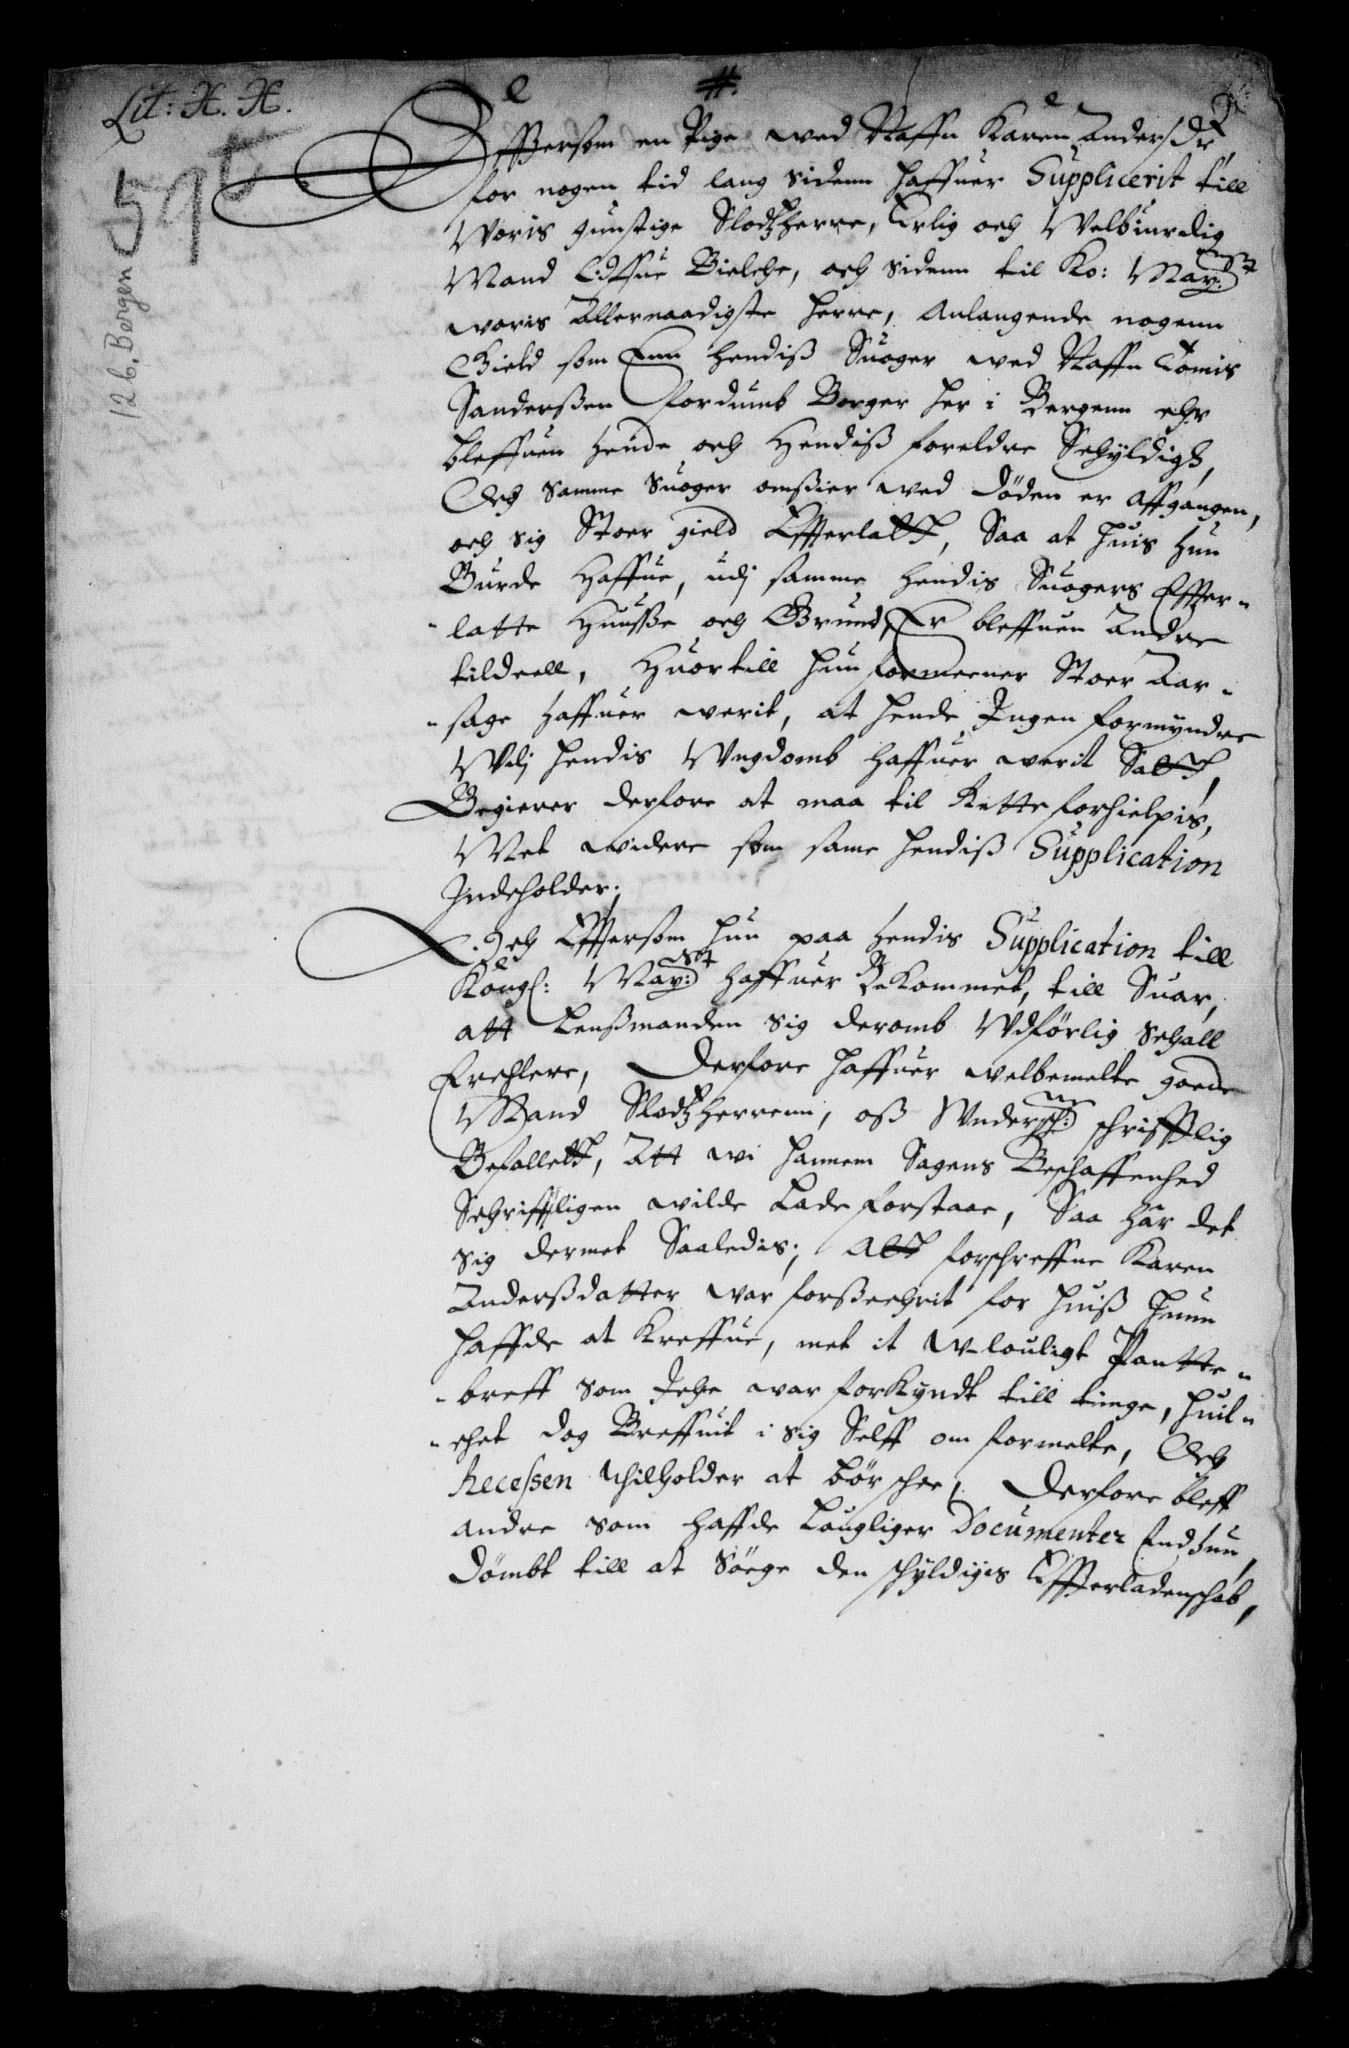 Lit: H. H.
#.
59t
12 b. Bergen
Effttersom en Pige wed Naffn Karen Andersdr
for nogen tid lang sidenn haffuer Supplicerit till
Woris gunstige Slodtzherre, Erlig och Welbiurdig
Mand Eiffue Bielche, och sidenn til Ko: May:
woris Allernaadigste herre, Anlangende nogenn
Gield som Enn hendiß Suoger wed Naffn Tomis
Sanderßen fordumb Borger her i Bergenn ehr
bleffuen hende och Hendiß foreldre Schyldigh,
Och samme Suoger omßier wed Döden er affgangen,
och sig Stoer gield Effterlatt, Saa at huis hun
Burde Haffue, udj samme hendis Suogers Effter-
-latte Huusße och Grund, Er bleffuen Andre
tildeell, Huortill hun formeener Stoer Aar-
-sage haffuer werit, at hende Ingen formyndre
Wdj hendis Ungdomb haffuer werit Satt,
Begierer derfore at maa til Rette forhielpis,
Met widere som same hendiß Supplication
Indeholder;
Och Efftersom hun paa hendis Supplication till
Kongl: May:st haffuer Bekommet, till Suar,
att Lenßmanden sig deromb Udførlig schall
Erchlere, Derfore haffuer welbemelte goede
Mand Slodtzherrenn, oß Undersch: schrifftlig
Befallett, Att wi hannem Sagens Beschaffenhed
Schrifftligen wilde Lade forstaae, Saa har det
sig dermet Saaledis; Att forschreffne Karen
Anderßdatter war forßeehrit for huiß hunn
haffde at Kreffue, met it W-louligt Pantte-
-breff som Iche war forkyndt till tinge, huil-
-chet dog Breffuit i sig Selff om formelte, Och
Recessen tilholder at bør schee, Derfore bleff
andre som haffde Lougliger Documenter End hun,
Dömbt till at Söege den schyldigis Effterladenschab,